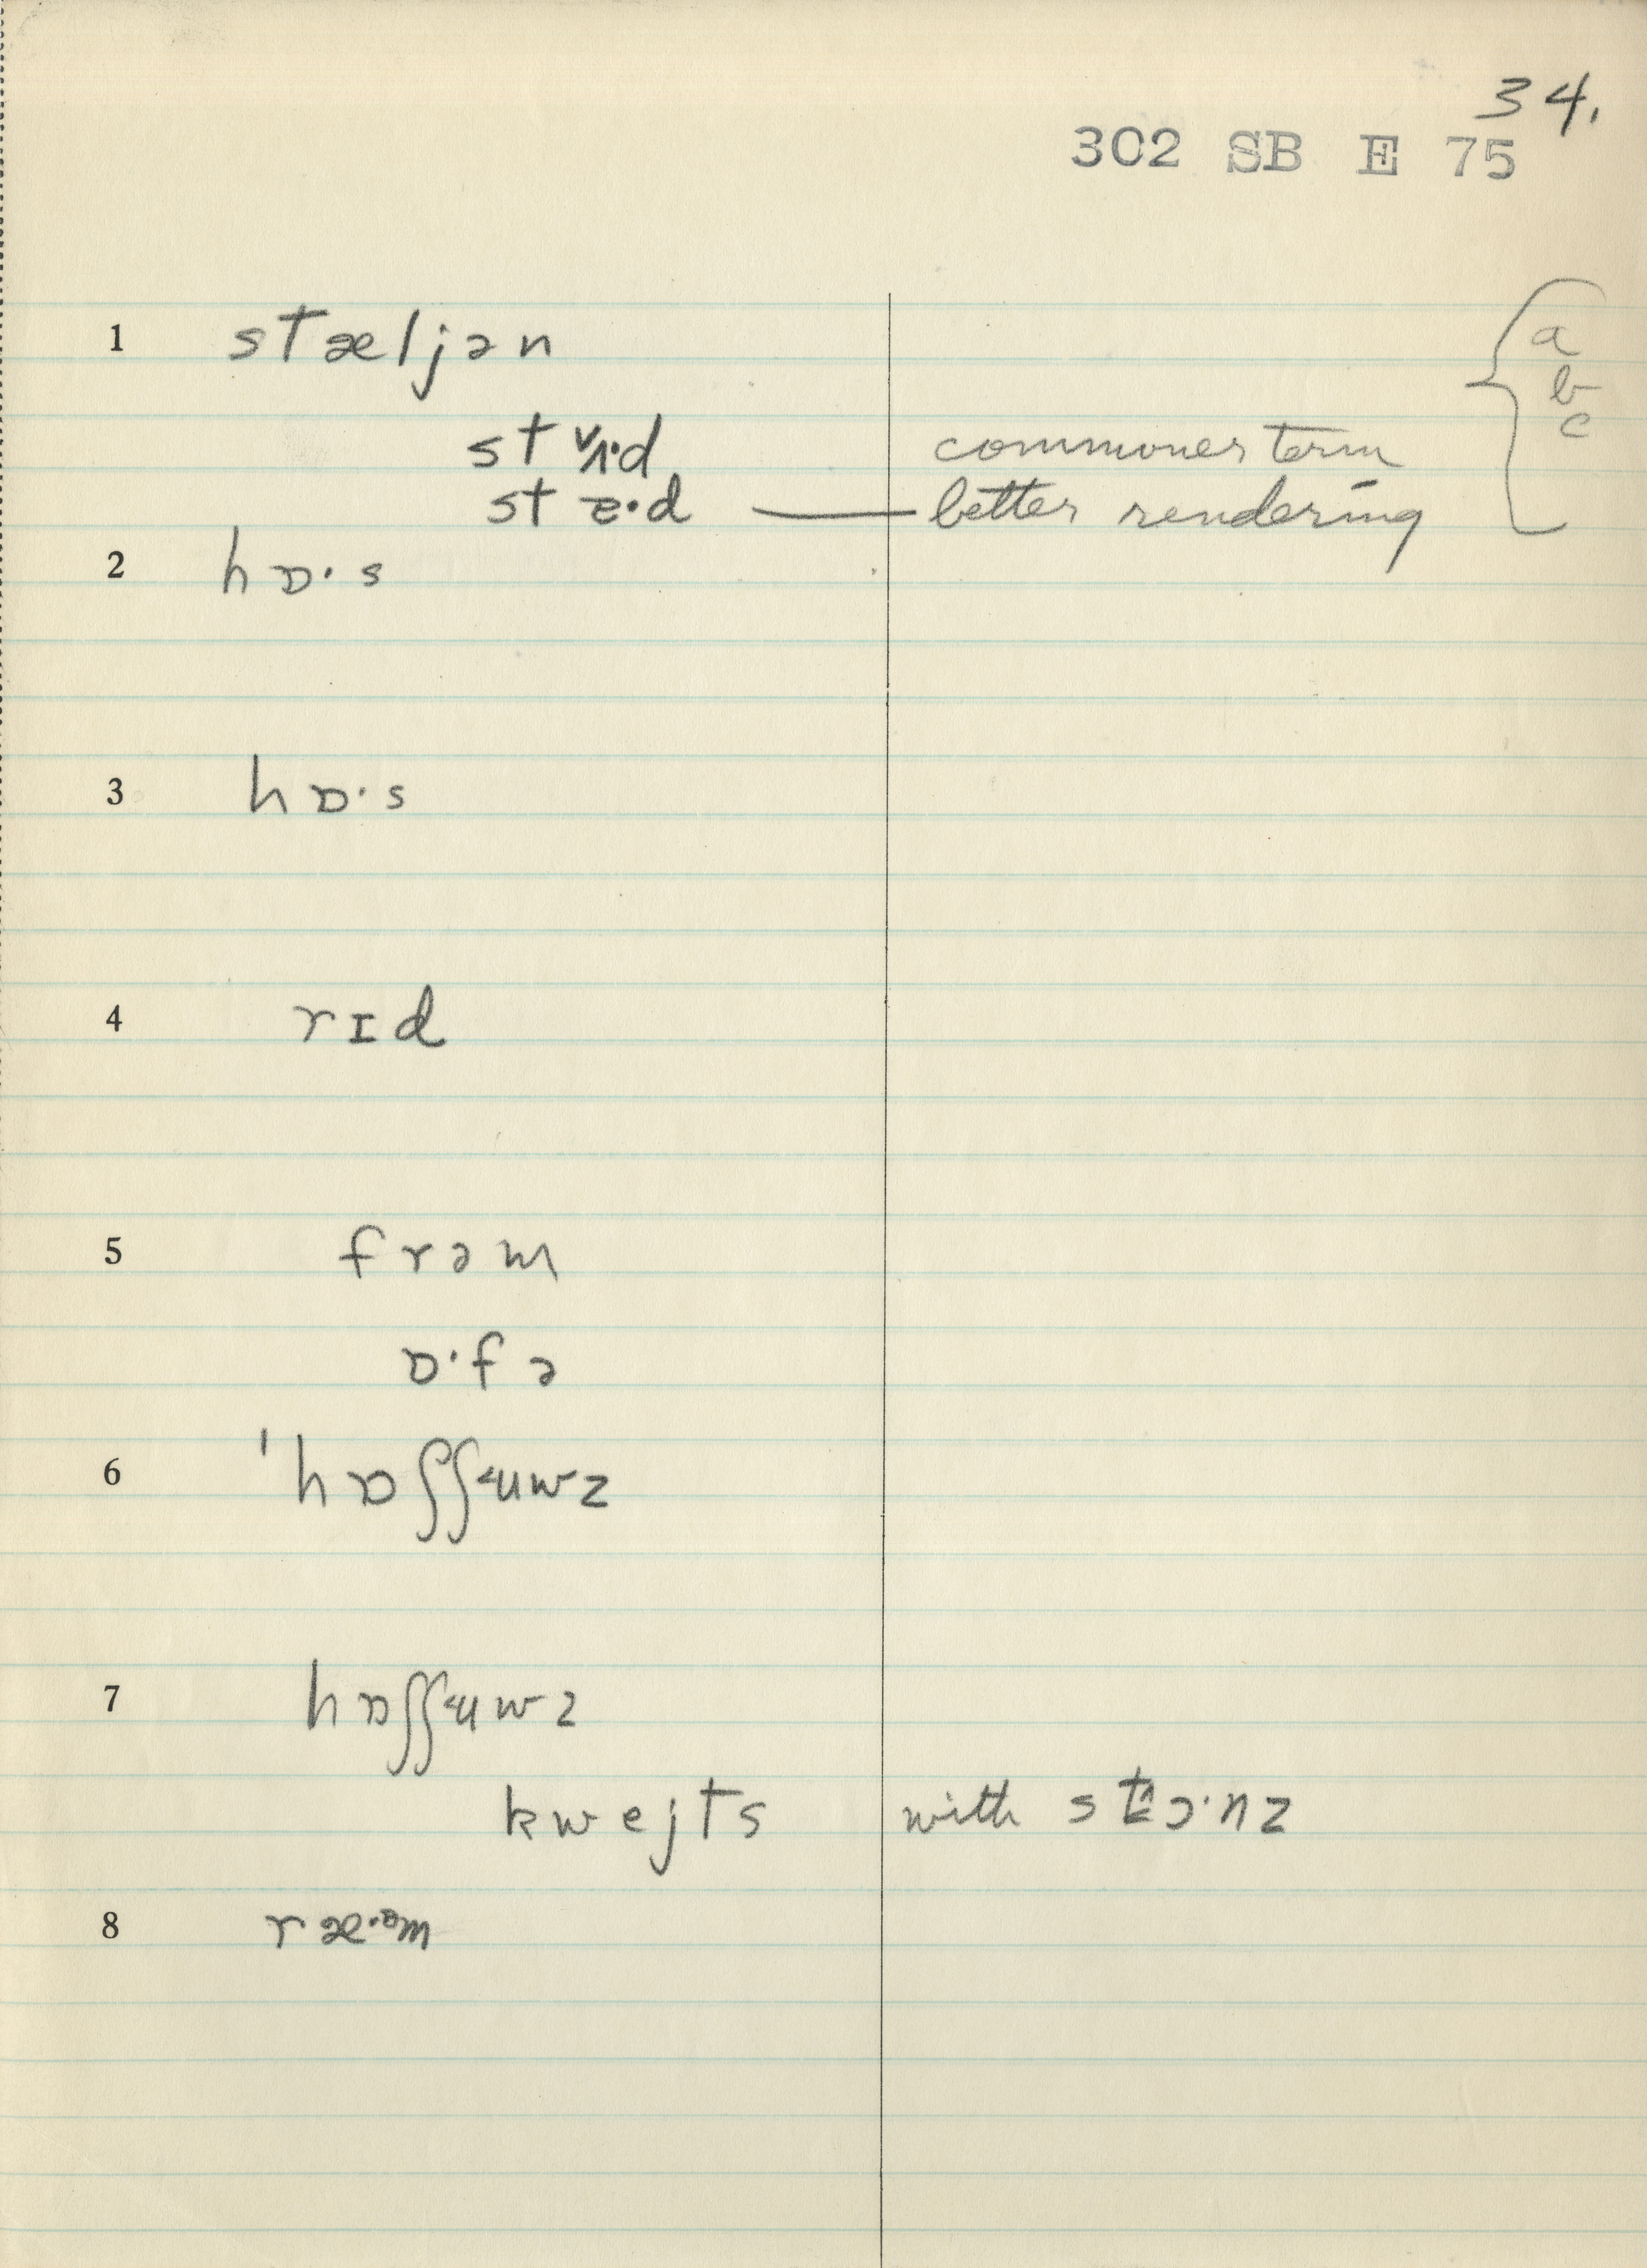 34.
302 SB E 75
1 stæljən
a
b
c
st d commoner term
st ɛ·d — better rendering
2 hɒ·s
3 hɒ·s
4 rɪd
5 frəm
ɒ·fə
6 'hɒʃʃ˂uwz
7 hɒʃʃ˂uwz
kwejts with
8